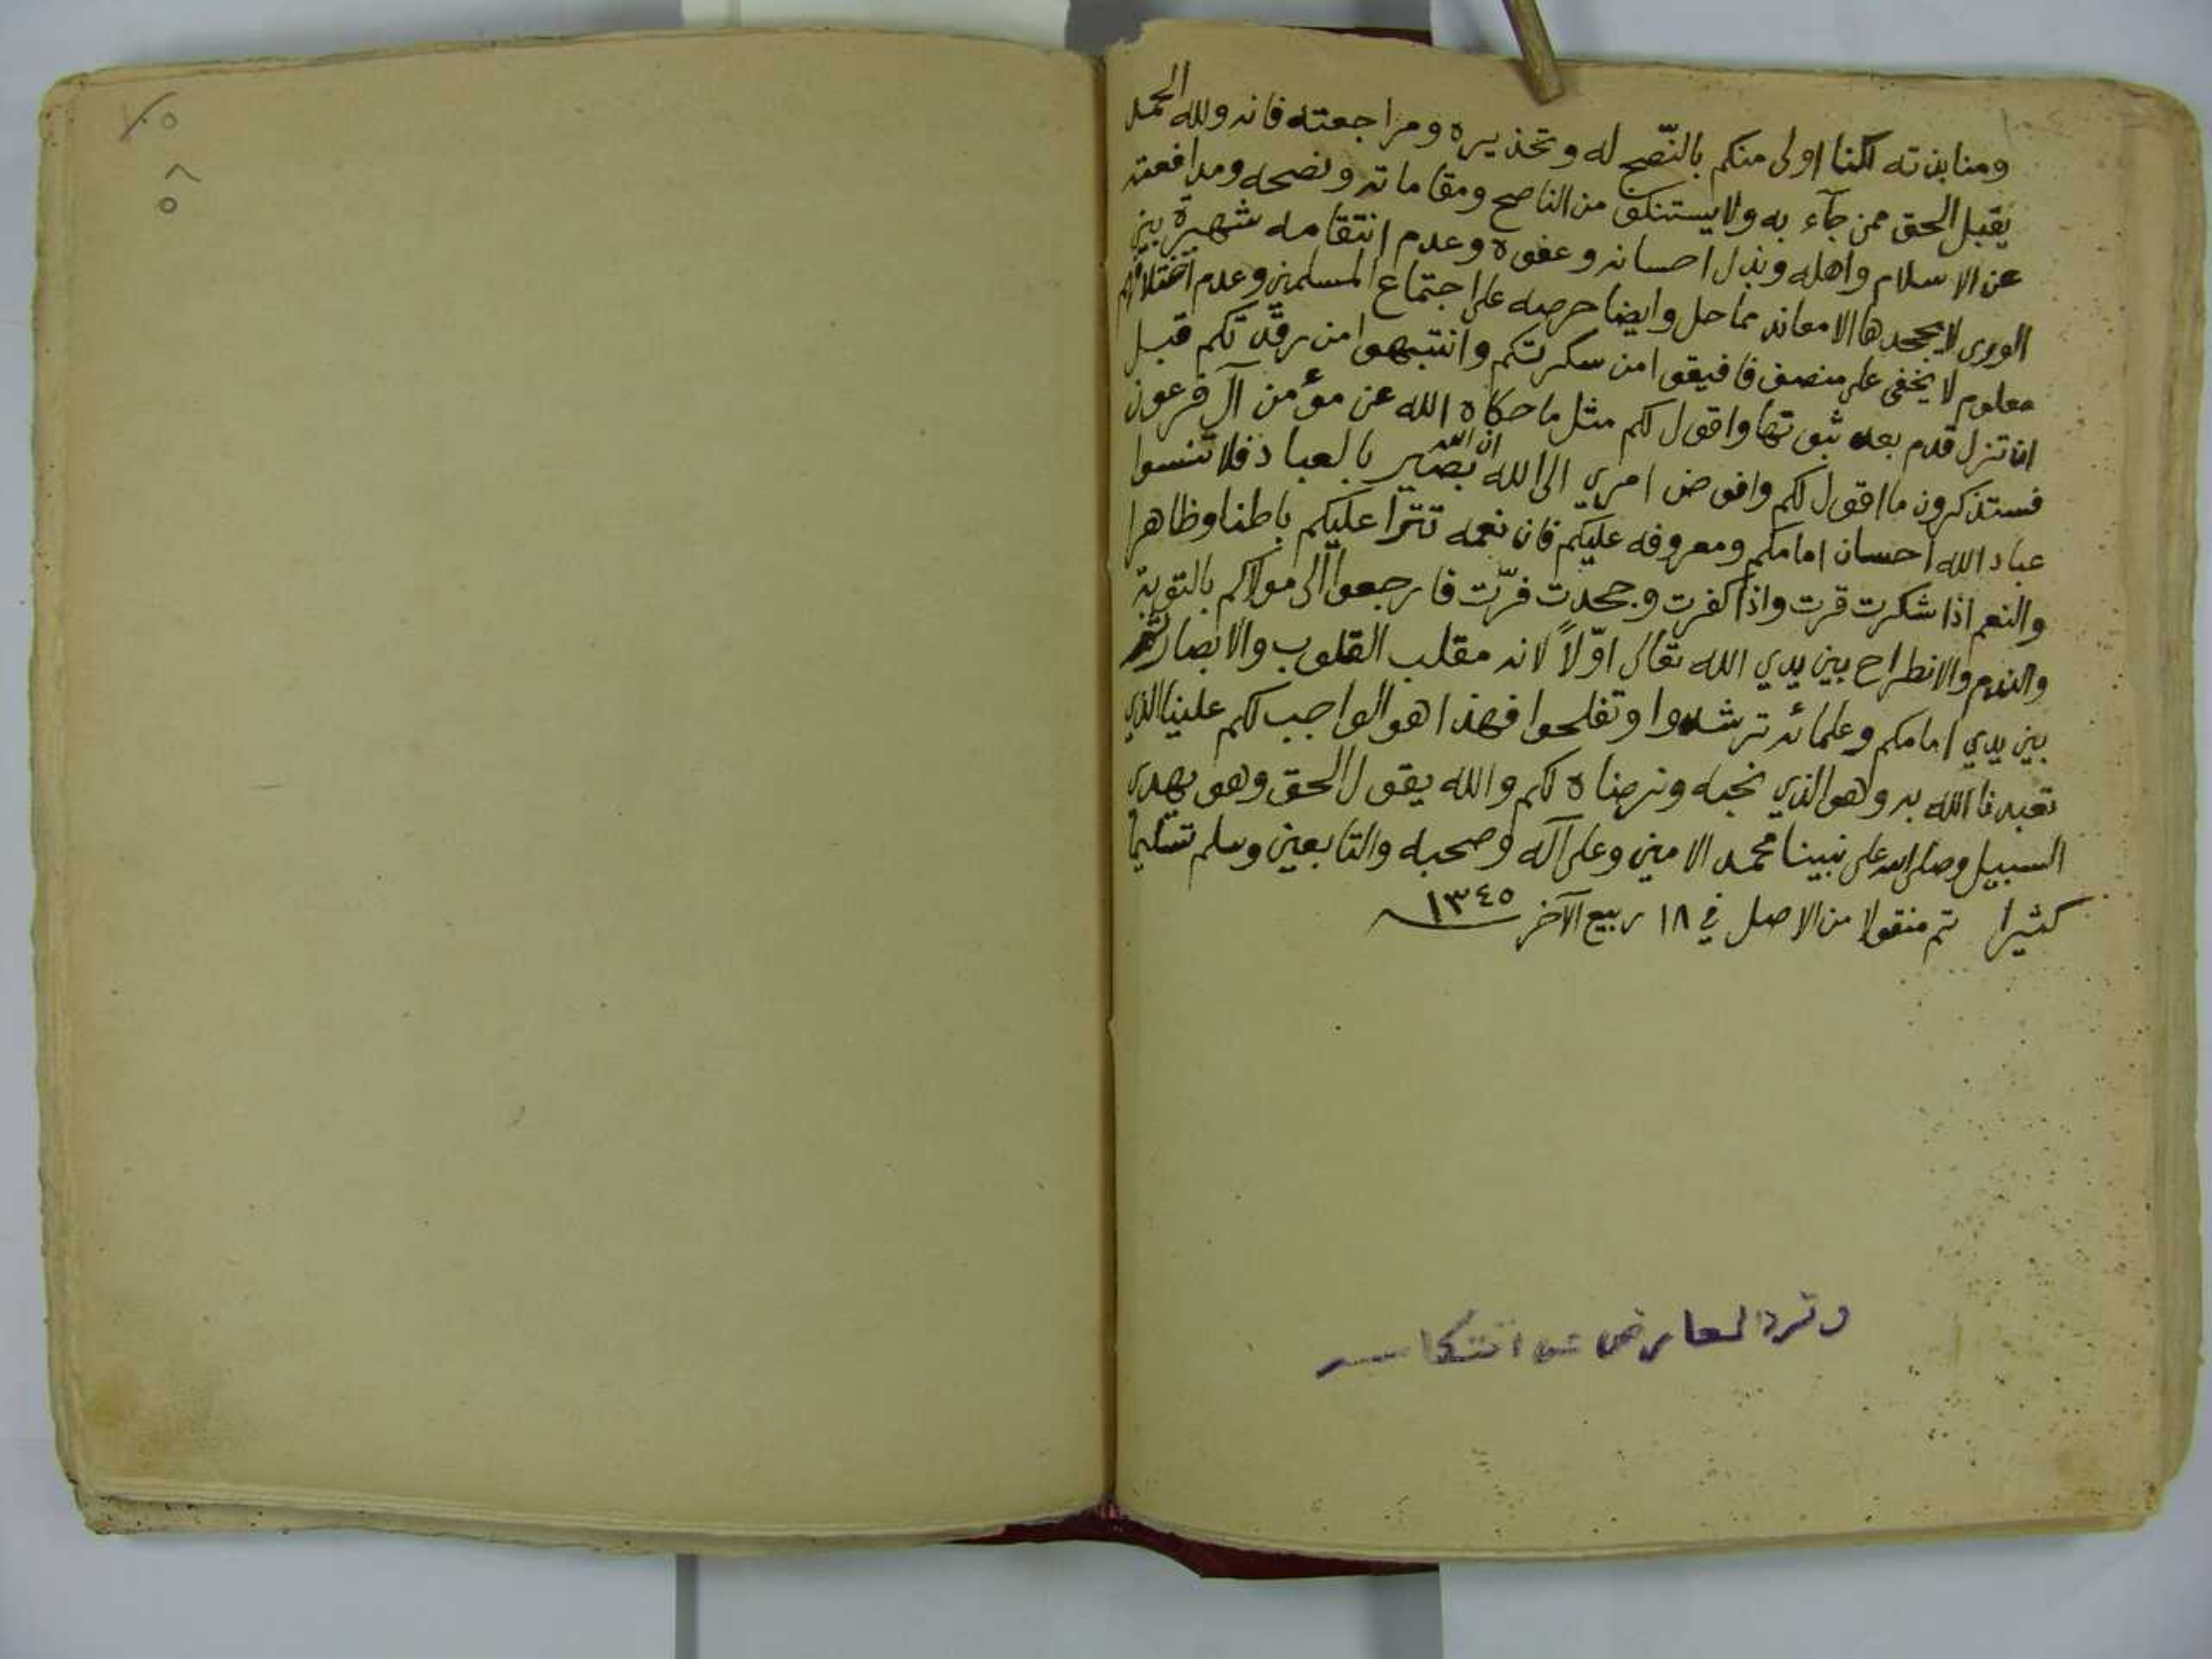 ومنابذته لكنا اولى منكم بالنّصح له وتحذيره ومراجعته فانه ولله الحمد
يقبل الحق ممن جآء به ولا يستنكف من الناصح ومقاماته ونصحه ومدافعته
عن الاسلام واهله وبذل احسانه وعفوه وعدم انتقامه شهيرة بين
الورى لا يجحدها الا معاند مماحل وايضا حرصه على اجتماع المسلمين وعدم اختلافهم
معلوم لا يخفى على منصف فافيقوا من سكرتكم وانتبهوا من رقدتكم قبل
ان تزل قدم بعد ثبوتها واقول لكم مثل ما حكاه الله عن مؤمن آل فرعون
فستذكرون ما اقول لكم وافوض امري الى الله ان الله بصير بالعباد فلا تنسوا
عباد الله احسان امامكم ومعروفه عليكم فان نعمه تترا عليكم باطنا وظاهرا
والنعم اذا شكرت قرت واذا كفرت وجحدت فرّت فارجعوا الى مولاكم بالتوبة
والندم والانطراح بين يدي الله تعالى اوّلاً لانه مقلب القلوب والابصار ثم
بين يدي امامكم وعلمائه ترشدوا وتفلحوا فهذا هو الواجب لكم علينا الذي
تعبدنا الله به وهو الذي نحبه ونرضاه لكم والله يقول الحق وهو يهدي
السبيل وصلى الله على نبينا محمد الامين وعلى آله وصحبه والتابعين وسلم تسليما
كثيرا تم منقولا من الاصل في ١٨ ربيع الآخر ١٣٤٥